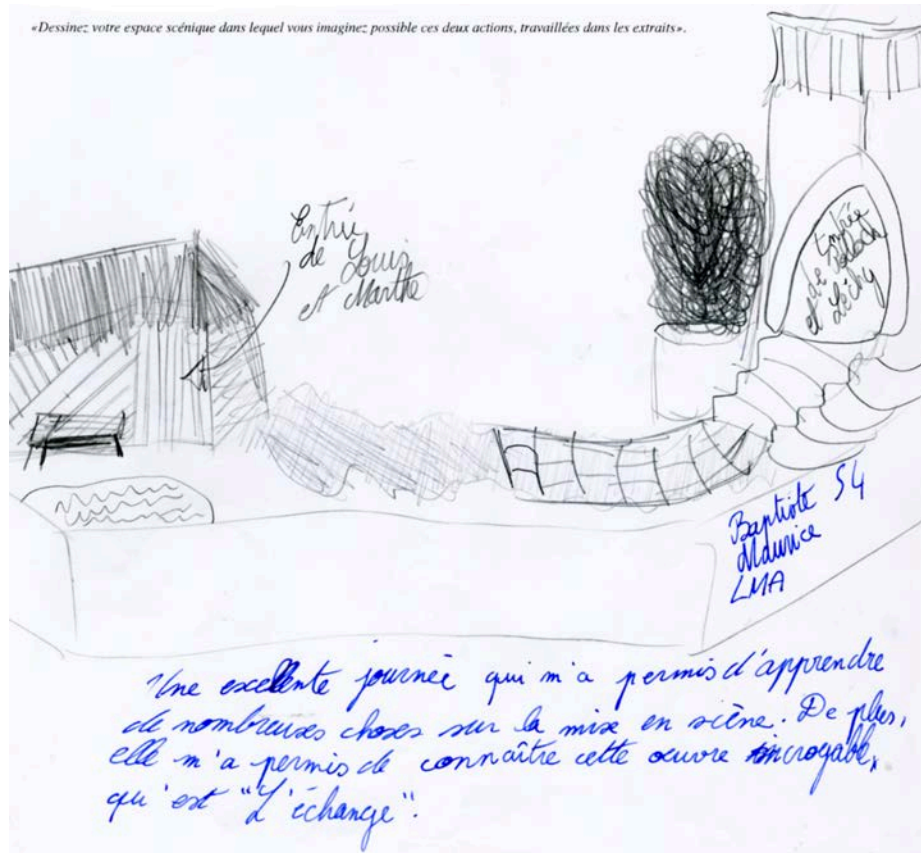 «Dessinez votre espace scénique dans lequel vous imaginez possible ces deux actions, travaillées dans les extraits».
Entrée
de Louis
et Marthe
Entrée
de
et Léchy
Baptiste S4
Maurice
LMA
Une excellente journée qui m'a permis d'apprendre
de nombreuses choses sur la mise en scène. De plus,
elle m'a permis de connaître cette œuvre incroyable,
qu'est "L'échange".